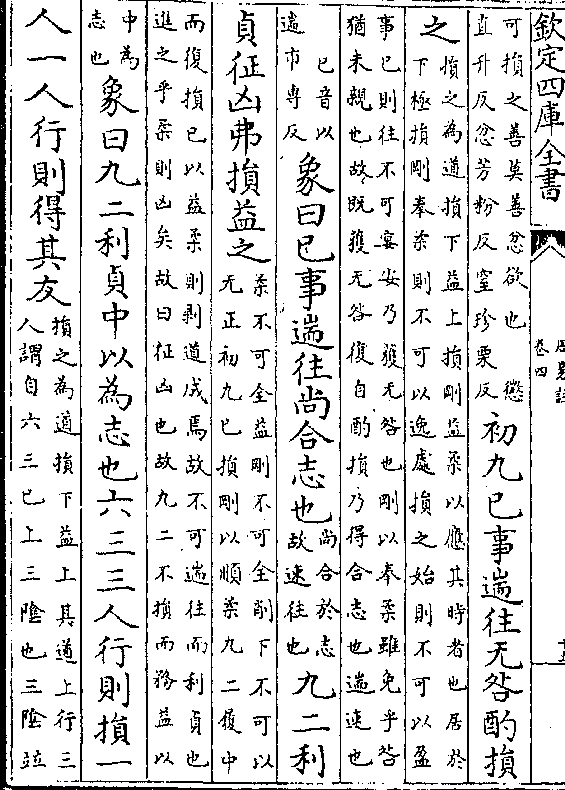 欽定四庫全書
卷四
可損之善莫善忿欲也　懲
直升反忿芳粉反窒珍栗反
初九已事遄往无咎酌損
之
損之為道損下益上損剛益柔以應其時者也居於
下極損剛奉柔則不可以逸處損之始則不可以盈
事已則往不可宴安乃獲无咎也剛以奉柔雖免乎咎
猶未親也故既獲无咎復自酌損乃得合志也遄速也
已音以
遄市專反
象曰已事遄往尚合志也
尚合於志
故速往也
九二利
貞征凶弗損益之
柔不可全益剛不可全削下不可以
无正初九已損剛以順柔九二履中
而復損已以益柔則剥道成焉故不可遄往而利貞也
進之乎柔則凶矣故曰征凶也故九二不損而務益以
中為
志也
象曰九二利貞中以為志也六三三人行則損一
人一人行則得其友
損之為道損下益上其道上行三
人謂自六三已上三陰也三陰竝